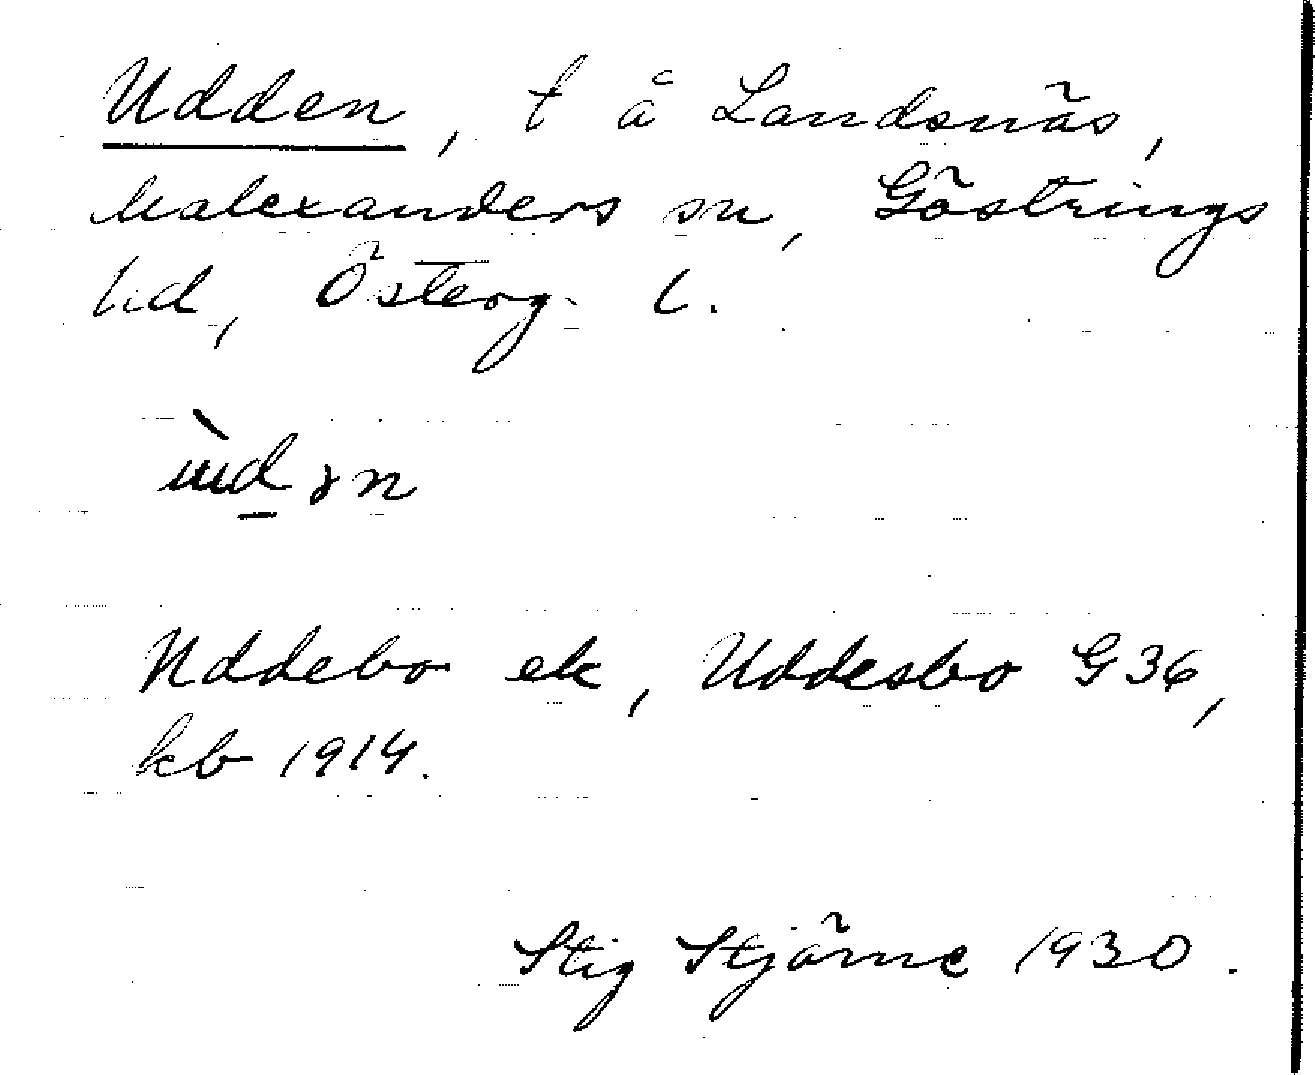 Udden, t å Landsnäs,
Malexanders sn, Göstrings
hd, Österg. l.
ùdən
Uddebo ek, Uddesbo G36,
kb 1914.
Stig Stjärne 1930.